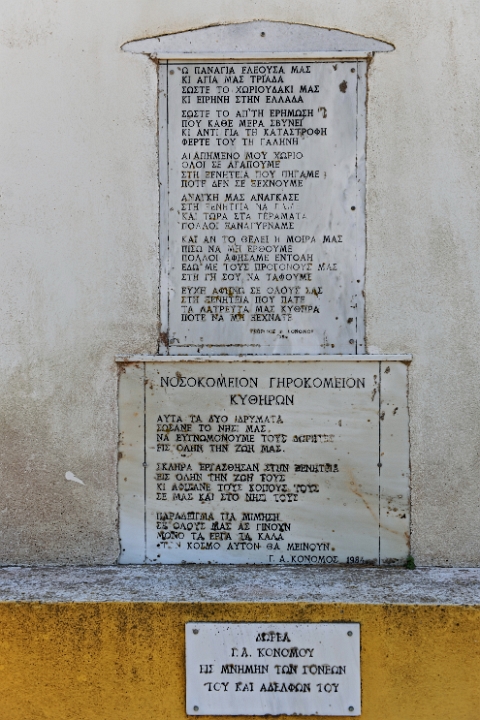 Ω ΠΑΝΑΓΙΑ ΕΛΕΟΥΣΑ ΜΑΣ
ΚΙ ΑΓΙΑ ΜΑΣ ΤΡΙΑΔΑ
ΣΩΣΤΕ ΤΟ ΧΩΡΙΟΥΔΑΚΙ ΜΑΣ
ΚΙ ΕΙΡΗΝΗ ΣΤΗΝ ΕΛΛΑΔΑ
ΣΩΣΤΕ ΤΟ ΑΠ'ΤΗ ΕΡΗΜΩΣΗ
ΠΟΥ ΚΑΘΕ ΜΕΡΑ ΣΒΥΝΕΙ
ΚΙ ΑΝΤΙ ΓΙΑ ΤΗ ΚΑΤΑΣΤΡΟΦΗ
ΦΕΡΤΕ ΤΟΥ ΤΗ ΓΑΛΗΝΗ
ΑΓΑΠΗΜΕΝΟ ΜΟΥ ΧΩΡΙΟ
ΟΛΟΙ ΣΕ ΑΓΑΠΟΥΜΕ
ΣΤΗ ΞΕΝΗΤΕΙΑ ΠΟΥ ΠΗΓΑΜΕ
ΠΟΤΕ ΔΕΝ ΣΕ ΞΕΧΝΟΥΜΕ
ΑΝΑΓΚΗ ΜΑΣ ΑΝΑΓΚΑΣΕ
ΣΤΗ ΞΕΝΗΤΕΙΑ ΝΑ
ΚΑΙ ΤΩΡΑ ΣΤΑ ΓΕΡΑΜΑΤΑ
ΠΟΛΛΟΙ ΞΑΝΑΓΥΡΝΑΜΕ
ΚΑΙ ΑΝ ΤΟ ΘΕΛΕΙ Η ΜΟΙΡΑ ΜΑΣ
ΠΙΣΩ ΝΑ ΜΗ ΕΡΘΟΥΜΕ
ΠΟΛΛΟΙ ΑΦΗΣΑΜΕ ΕΝΤΟΛΗ
ΕΔΩ ΜΕ ΤΟΥΣ ΠΡΟΓΟΝΟΥΣ ΜΑΣ
ΣΤΗ ΓΗ ΣΟΥ ΝΑ ΤΑΦΟΥΜΕ
ΕΥΧΗ ΑΦΗΝΩ ΣΕ ΟΛΟΥΣ ΣΑΣ
ΣΤΗ ΞΕΝΗΤΕΙΑ ΠΟΥ ΠΑΤΕ
ΤΑ ΛΑΤΡΕΥΤΑ ΜΑΣ ΚΥΘΗΡΑ
ΠΟΤΕ ΝΑ ΜΗ ΞΕΧΝΑΤΕ
ΝΟΣΟΚΟΜΕΙΟΝ ΓΗΡΟΚΟΜΕΙΟΝ
ΚΥΘΗΡΩΝ
ΑΥΤΑ ΤΑ ΔΥΟ ΙΔΡΥΜΑΤΑ
ΣΩΣΑΝΕ ΤΟ ΝΗΣΙ ΜΑΣ.
ΝΑ ΕΥΓΝΩΜΟΝΟΥΜΕ ΤΟΥΣ ΔΩΡΗΤΕΣ
ΕΙΣ ΟΛΗΝ ΤΗΝ ΖΩΗ ΜΑΣ.
ΣΚΛΗΡΑ ΕΡΓΑΣΘΗΣΑΝ ΣΤΗΝ ΞΕΝΗΤΕΙΑ
ΕΙΣ ΟΛΗΝ ΤΗΝ ΖΩΗ ΤΟΥΣ
ΚΙ ΑΦΙΣΑΝΕ ΤΟΥΣ ΚΟΠΟΥΣ ΤΟΥΣ
ΣΕ ΜΑΣ ΚΑΙ ΣΤΟ ΝΗΣΙ ΤΟΥΣ
ΠΑΡΑΔΕΙΓΜΑ ΓΙΑ ΜΙΜΗΣΗ
ΣΕ ΟΛΟΥΣ ΜΑΣ ΑΣ ΓΙΝΟΥΝ
ΜΟΝΟ ΤΑ ΕΡΓΑ ΤΑ ΚΑΛΑ
ΣΤΟΝ ΚΟΣΜΟ ΑΥΤΟΝ ΘΑ ΜΕΙΝΟΥΝ.
Γ. Α. ΚΟΝΟΜΟΣ
ΔΩΡΕΑ
Γ. Α. ΚΟΝΟΜΟΥ
ΕΙΣ ΜΝΗΜΗΝ ΤΩΝ ΓΟΝΕΩΝ
ΤΟΥ ΚΑΙ ΑΔΕΛΦΩΝ ΤΟΥ